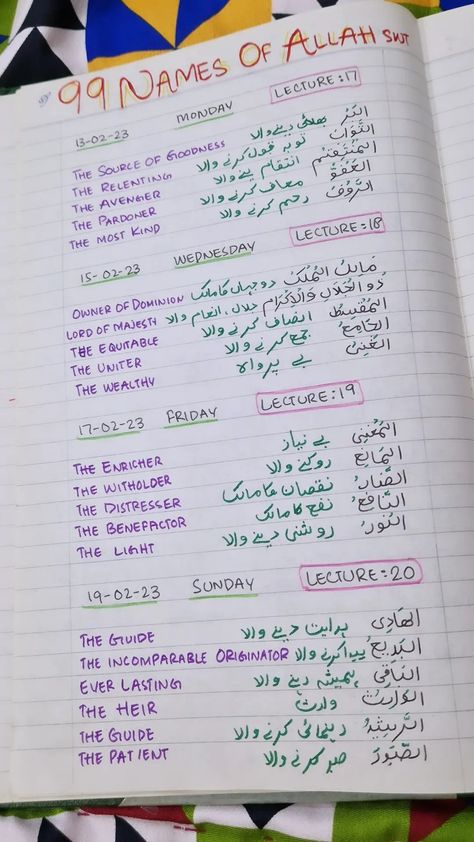 99 NAMES OF ALLAH SWT
13-02-23 MONDAY LECTURE:17
THE SOURCE OF GOODNESS بھلائی دینے والا البَرُّ
THE RELENTING توبہ قبول کرنے والا التَّوَّابُ
THE AVENGER انتقام لینے والا المُنْتَقِمُ
THE PARDONER معاف کرنے والا العَفُوُّ
THE MOST KIND رحم کرنے والا الرَّؤُفُ
15-02-23 WEDNESDAY LECTURE:18
OWNER OF DOMINION دو جہاں کا مالک مَالِكُ المُلْكُ
LORD OF MAJESTY جلال، انعام والا ذُو الجَلَالِ وَالْاِكْرَام
THE EQUITABLE انصاف کرنے والا المُقْسِطُ
THE UNITER جمع کرنے والا الجَامِعُ
THE WEALTHY بے پرواہ الغَنِىُّ
17-02-23 FRIDAY LECTURE:19
THE ENRICHER بے نیاز المُغْنِىُ
THE WITHOLDER روکنے والا المَانِعُ
THE DISTRESSER نقصان کا مالک الضَّارُّ
THE BENEFACTOR نفع کا مالک النَّافِعُ
THE LIGHT روشنی دینے والا النُّورُ
19-02-23 SUNDAY LECTURE:20
THE GUIDE ہدایت دینے والا الهَادِى
THE INCOMPARABLE ORIGINATOR پیدا کرنے والا البَدِيعُ
EVER LASTING ہمیشہ رہنے والا البَاقِى
THE HEIR وارث الوَارِثُ
THE GUIDE رہنمائی کرنے والا الرَّشِيدُ
THE PATIENT صبر کرنے والا الصَّبُورُ